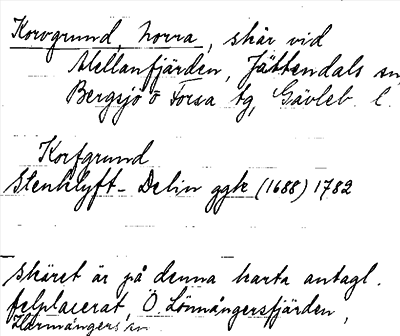 Korvgrund, norra, skär vid
Mellanfjärden, Jättendals sn,
Bergsjö o Forsa tg, Gävleb. l.
Korfgrund
Stenklyft-Delin ggk (1688) 1782
skäret är på denna karta antagl.
felplacerat, Ö Lönnångersfjärden,
Harmångers sn